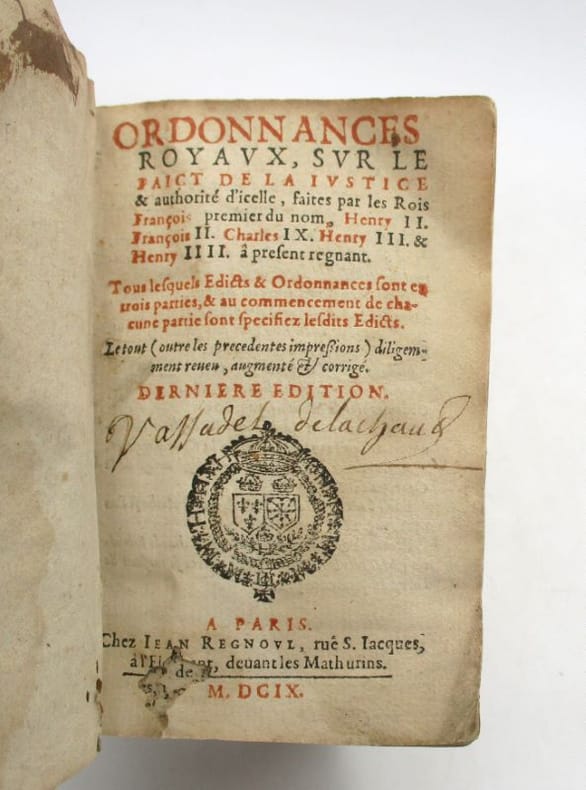 ORDONNANCES
ROYAVX, SVR LE
FAICT DE LA IVSTICE
& authorité d'icelle, faites par les Rois
François premier du nom, Henry II.
François II. Charles IX. Henry III. &
Henry IIII. â present regnant.
Tous lesquels Edicts & Ordonnances sont en
trois parties, & au commencement de cha-
cune partie sont specifiez lesdits Edicts.
Le tout (outre les precedentes impressions) diligem-
ment reueu, augmenté & corrigé.
DERNIERE EDITION.
Vassadel delachaud
A PARIS.
Chez IEAN REGNOVL, ruë S. Iacques,
deuant les Mathurins.
de
M. DCIX.